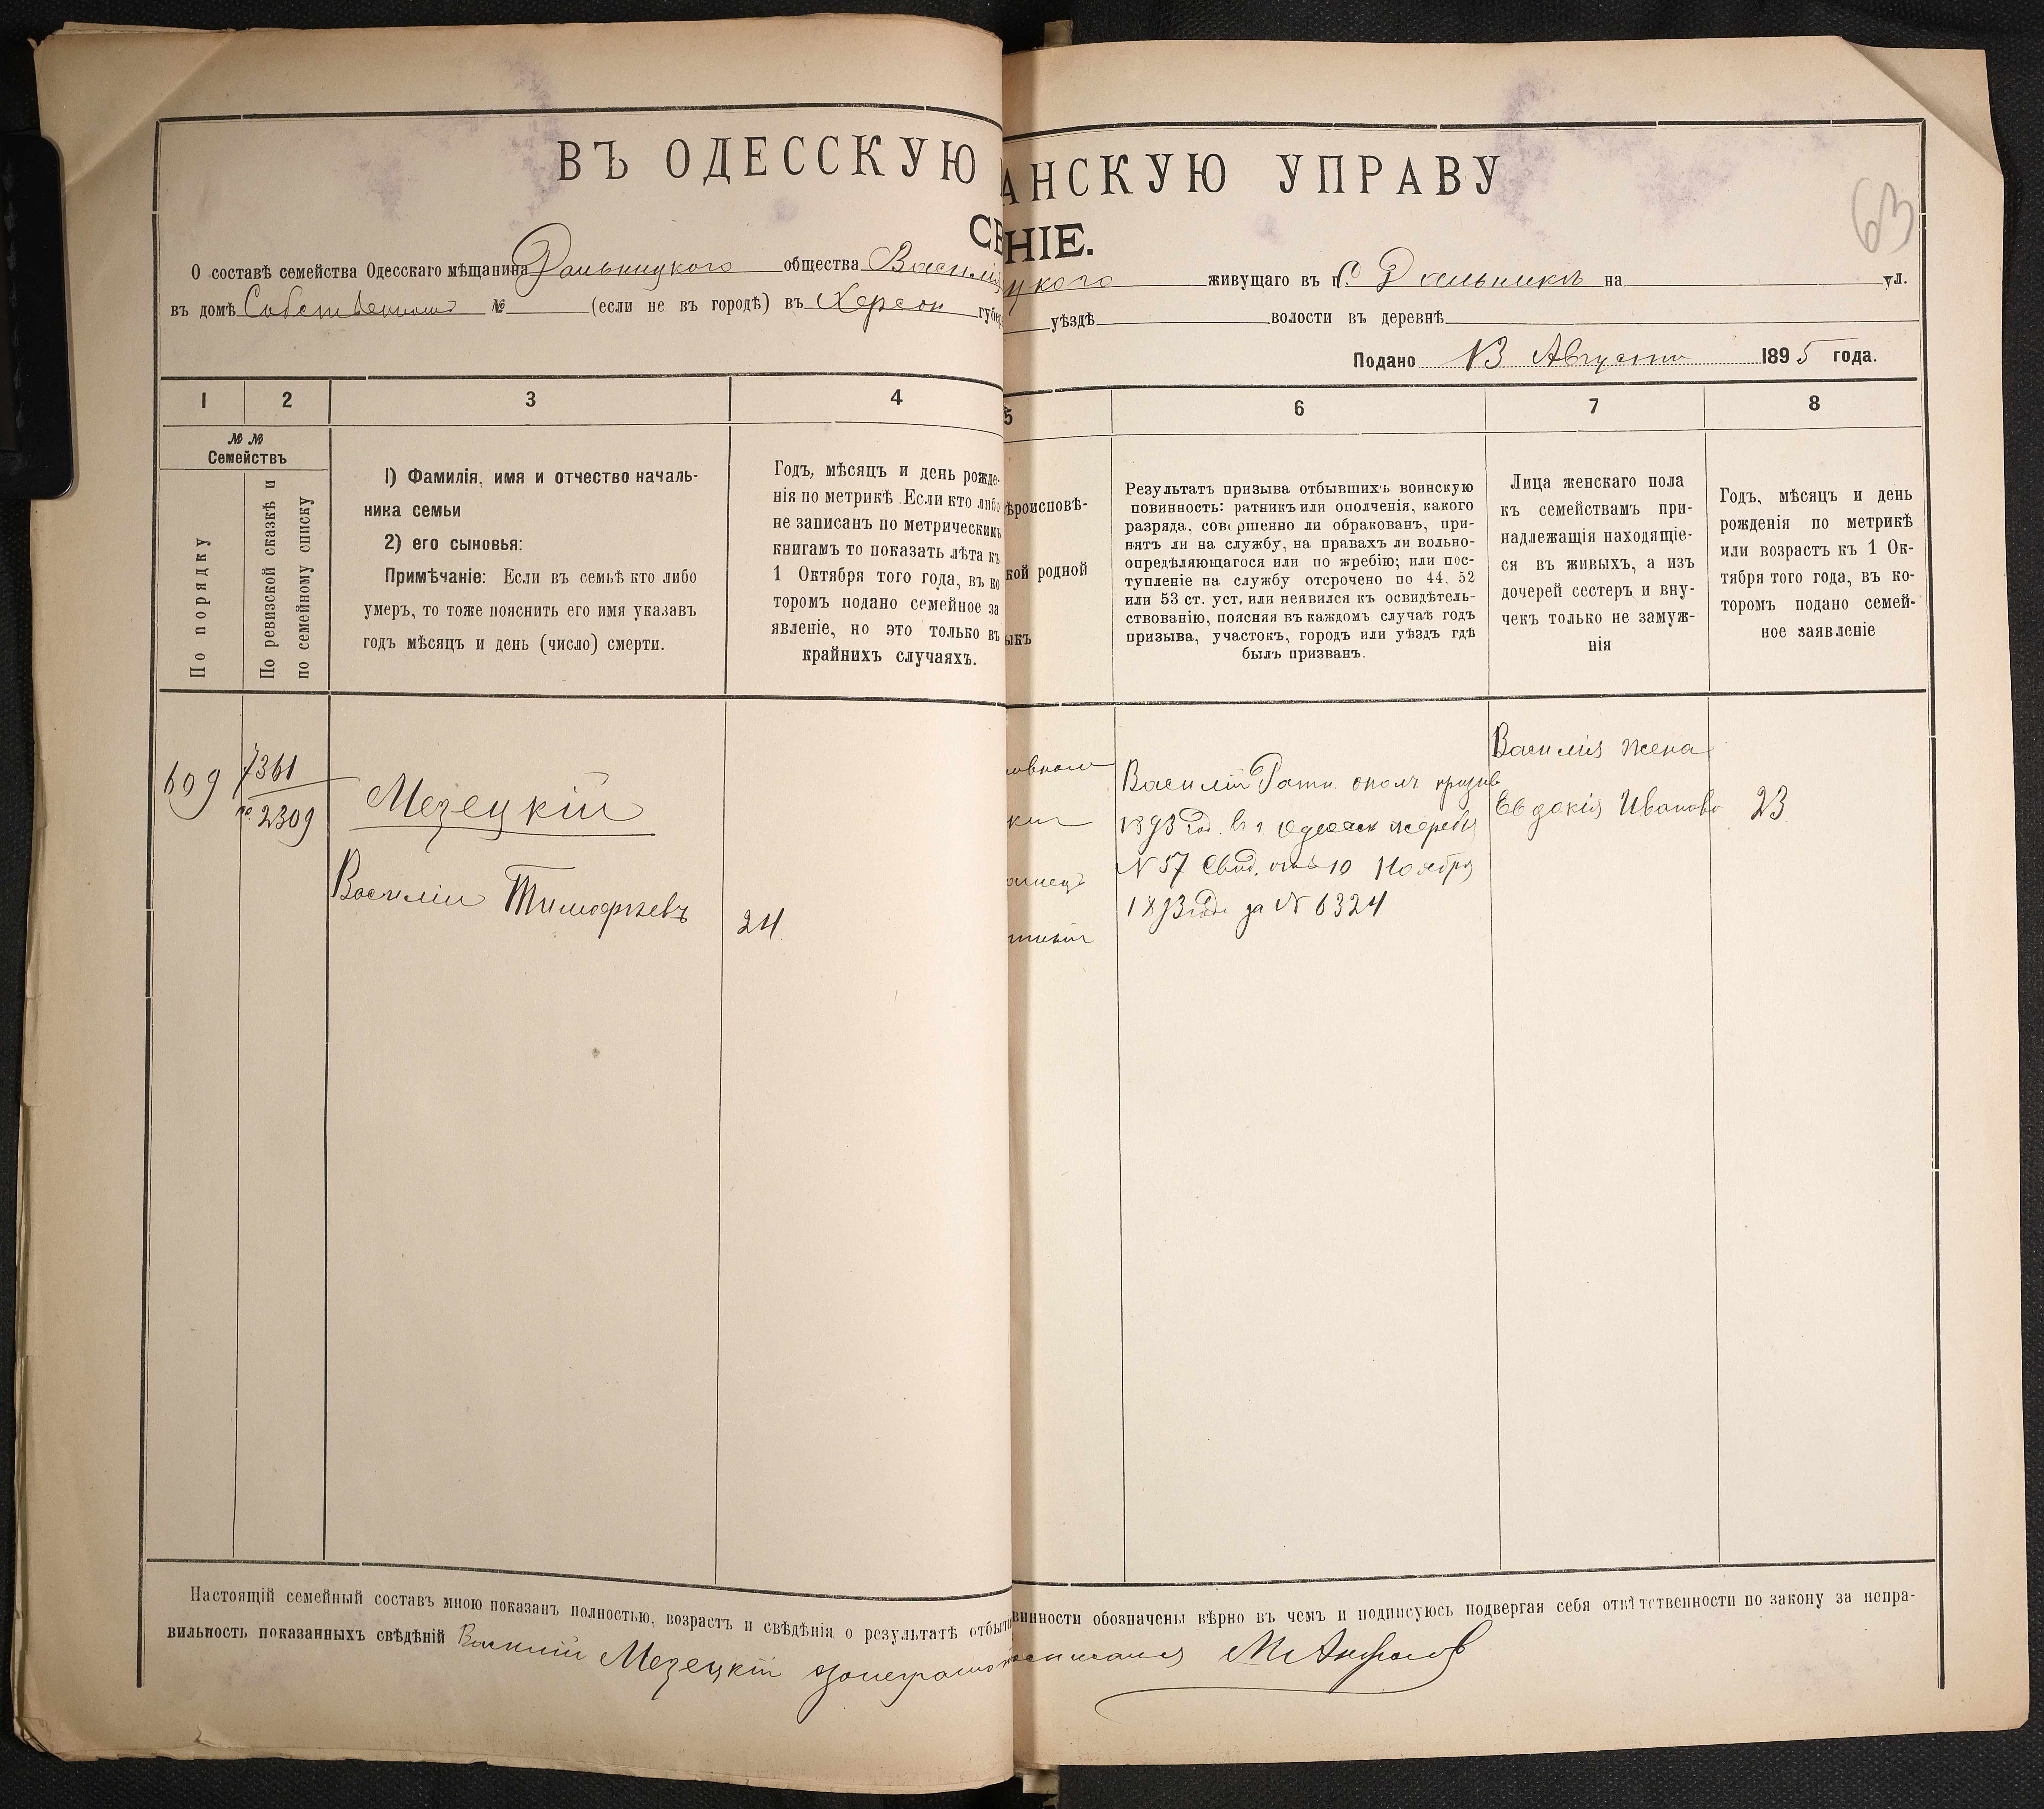 ВЪ ОДЕССКУЮ АНСКУЮ УПРАВУ
63
СВ НІЕ.
О составѣ семейства Одесскаго мѣщанина Дальницкого общества Васил цкого живущаго въ г. С Дальникѣ на ул.
въ домѣ Собственном № (если не въ городѣ) въ Херсон губер уѣздѣ волости въ деревнѣ
Подано 13 Августа 1895 года.
1 2 3 4 5 6 7 8
№ №
Семействъ
По порядку
По ревизской сказкѣ и
по семейному списку
1) Фамилія, имя и отчество началь-
ника семьи
2) его сыновья:
Примѣчаніе: Если въ семьѣ кто либо
умеръ, то тоже пояснить его имя указавъ
годъ мѣсяцъ и день (число) смерти.
Годъ, мѣсяцъ и день рожде-
нія по метрикѣ. Если кто либо
не записанъ по метрическимъ
книгамъ то показать лѣта къ
1 Октября того года, въ ко
торомъ подано семейное за
явленіе, но это только въ
крайнихъ случаяхъ.
ѣроисповѣ-
кой родной
ыкъ
Результатъ призыва отбывшихъ воинскую
повинность: ратникъ или ополченія, какого
разряда, совершенно ли обракованъ, при-
нятъ ли на службу, на правахъ ли вольно-
опредѣляющагося или по жребію; или пос-
тупленіе на службу отсрочено по 44, 52
или 53 ст. уст. или неявился къ освидѣтель-
ствованію, поясняя въ каждомъ случаѣ годъ
призыва, участокъ, городъ или уѣздъ гдѣ
былъ призванъ.
Лица женскаго пола
къ семействамъ при-
надлежащія находящіе-
ся въ живыхъ, а изъ
дочерей сестеръ и вну-
чекъ только не замуж-
нія
Годъ, мѣсяцъ и день
рожденія по метрикѣ
или возрастъ къ 1 Ок-
тября того года, въ ко-
торомъ подано семей-
ное заявленіе
609
7361
2309
Мезецкій
Василій Тимофѣевъ
24
Василій Ратн. ополч призыв
1893 год. в г. Одесск жеребія
N 57 Свид. отъ 10 Ноября
1893 года за N 6324
Василія жена
Евдокія Иванова
23
Настоящій семейный составъ мною показанъ полностью, возрастъ и свѣдѣнія о результатѣ отбыті винности обозначены вѣрно въ чемъ и подписуюсь подвергая себя отвѣтственности по закону за непра-
вильность показанныхъ свѣдѣній Василій Мезецкій